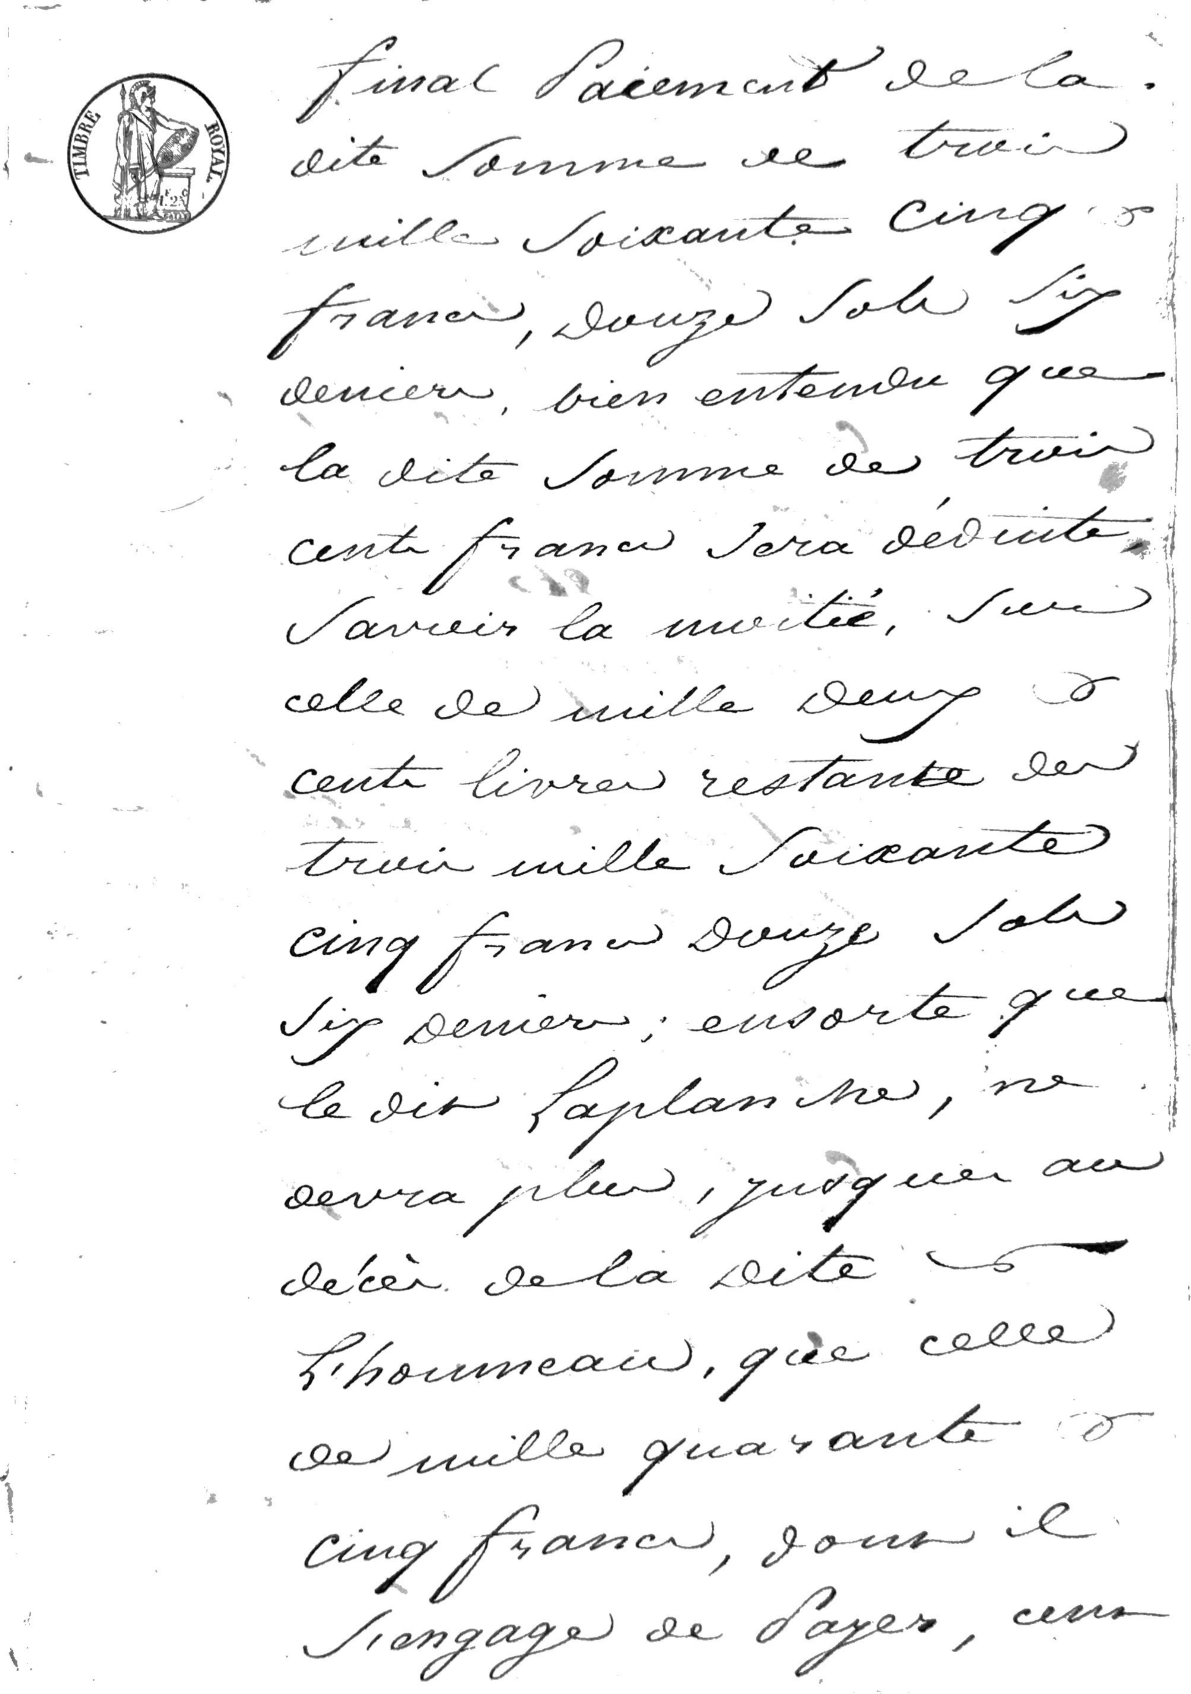 TIMBRE ROYAL
final Paiement de la
dite Somme de trois
mille Soixante Cinq
francs, douze Sols Six
deniers, bien entendu que
la dite Somme de trois
cents francs Sera déduite,
Savoir la moitié, Sur
celle de mille deux
cents livres restante des
trois mille Soixante
cinq francs douze Sols
Six deniers; ensorte que
le dit Laplanche, ne
devra plus, jusques au
décès de la dite
Lhoumeau, que celle
de mille quarante
cinq francs, dont il
S'engage de Payer, cent